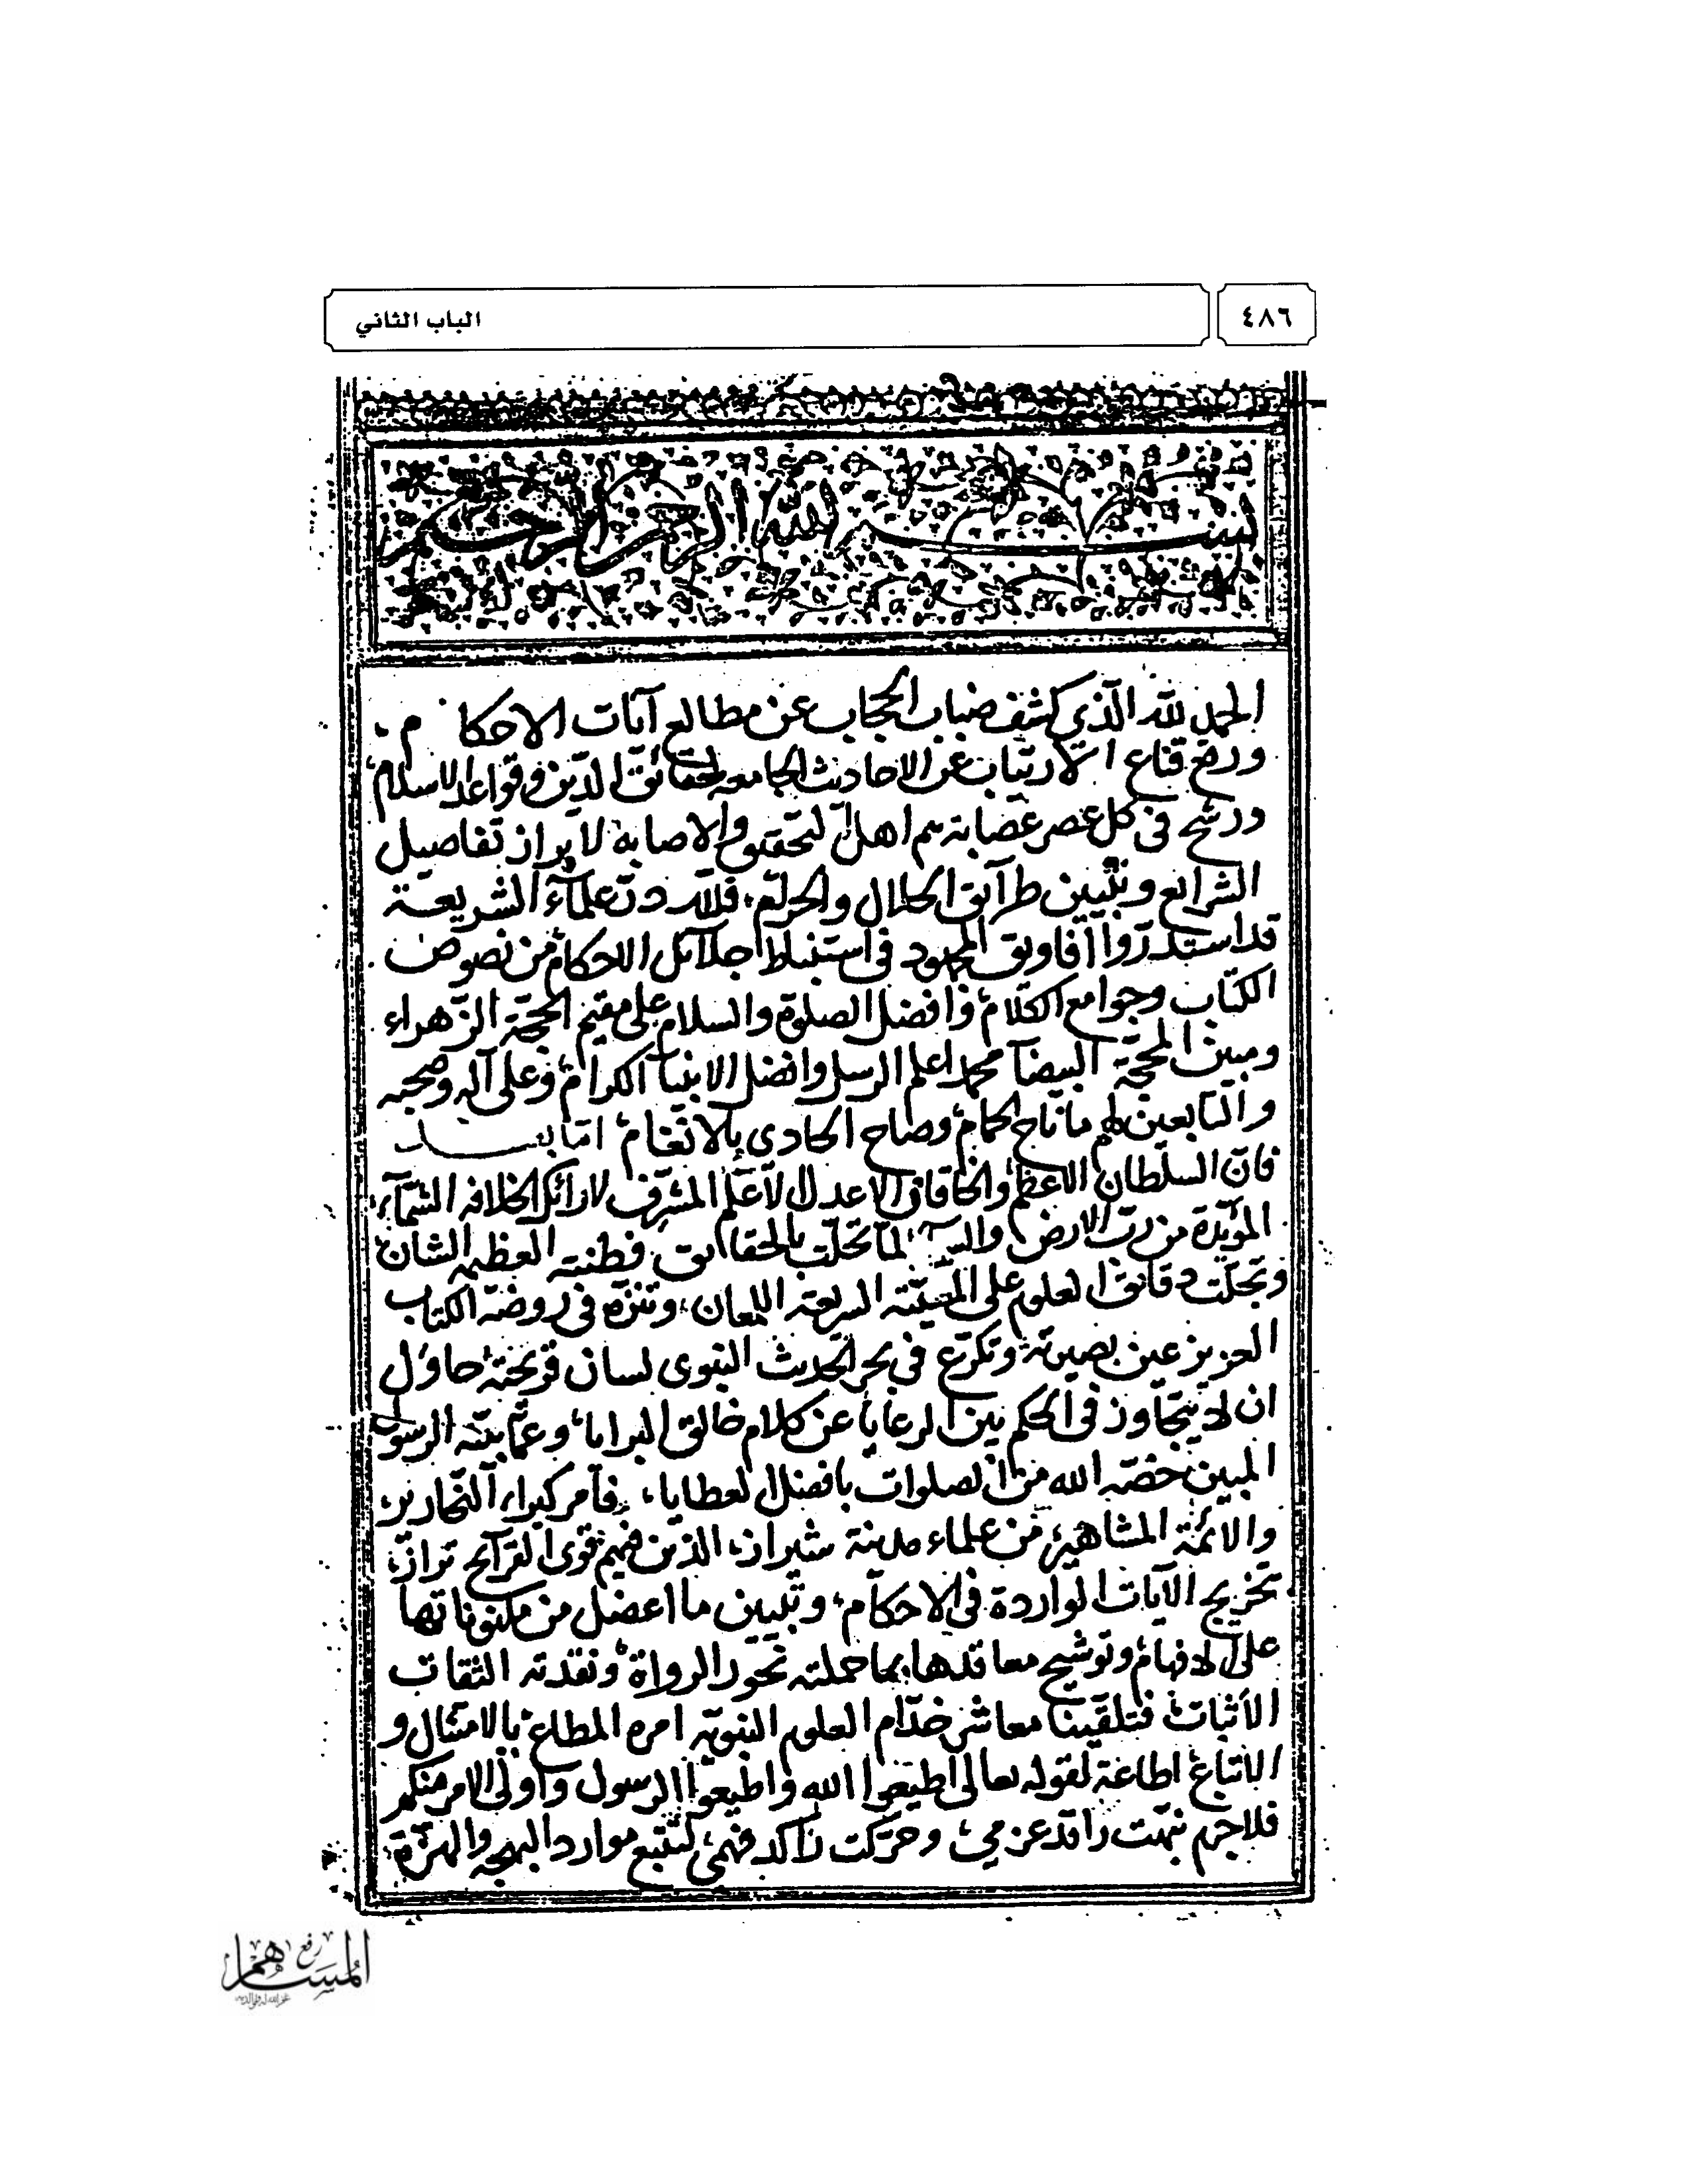 ٤٨٦
الباب الثاني
بسم الله الرحمن الرحيم
الحمد لله الذي كشف ضباب الحجاب عن مطالع آيات الاحكام
ورفع قناع الارتياب عن الاحاديث الجامعه لحقائق الدين وقواعد الاسلام
ورشح فى كل عصر عصابة هم اهل التحقيق والاصابه لابراز تفاصيل
الشرايع وتبيين طرآئق الحلال والحرام، علمآء الشريعة
قد استدرّوا أفاويق المجهود فى استنباط جلآئل الاحكام من نصوص
الكتاب وجوامع الكلام وافضل الصلوة والسلام على مقيم الحجة الزهراء
ومبين المحجة البيضآ محمد اعلم الرسل وافضل الانبيآ الكرام وعلى آله وصحبه
والتابعين لهم ما ناح الحمام وصاح الحادى بالانغام امّا بعد
فانّ السلطان الاعظم والخاقان الاعدل الاعلم المشرّف لارائك الخلافه الشمّآء
المؤيّدة من ربّ الارض والسمآ لما تحلّت بالحقائق فطنته العظيمه الشان
وتجلّت دقائق العلوم على السريعة اللمعان، وتنزّه فى روضة الكتاب
العزيز عين بصيرته وتكرّع فى بحر الحديث النبوى لسان قريحته حاول
ان لا يتجاوز فى الحكم بين الرعايا عن كلام خالق البرايا، وعمّا بيّنه الرسول
المبين خصّه الله من الصلوات بافضل العطايا، فآمر كبراء النحارير،
والائمّة المشاهير من علماء مدينة شيراز، الذين فيهم قوى القرآئح تراز،
تخريج الآيات الواردة فى الاحكام، وتبيين ما اعضل من مكنوناتها
على الافهام وتوشيح معاقدها بما حملته نحور الرواة ونقدته الثقات
الأثبات فتلقّينا معاشر خدّام العلوم النبويّه امره المطاع بالامتثال و
الاتباع اطاعة لقوله تعالى اطيعوا الله واطيعوا الرسول واولى الامر منكم
فلاجرم نبّهت راقد عزمى، وحرّكت راكد فهمى، لتتبّع موارد البهجه والمهزّة
المساهم
رفع
غفر الله له ولوالديه